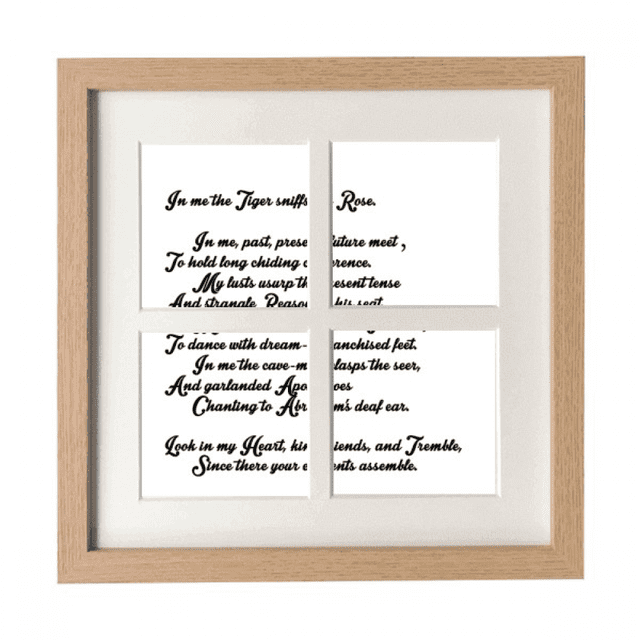 In me the Tiger sniffs Rose.
In me, past, prese uture meet,
To hold long chiding c erence.
My lusts usurp th esent tense
And strangle Reaso his seat
To dance with dream- anchised feet.
In me the cave-m lasps the seer,
And garlanded Apo oes
Chanting to Abr m's deaf ear.
Look in my Heart, kin iends, and Tremble,
Since there your e nts assemble.